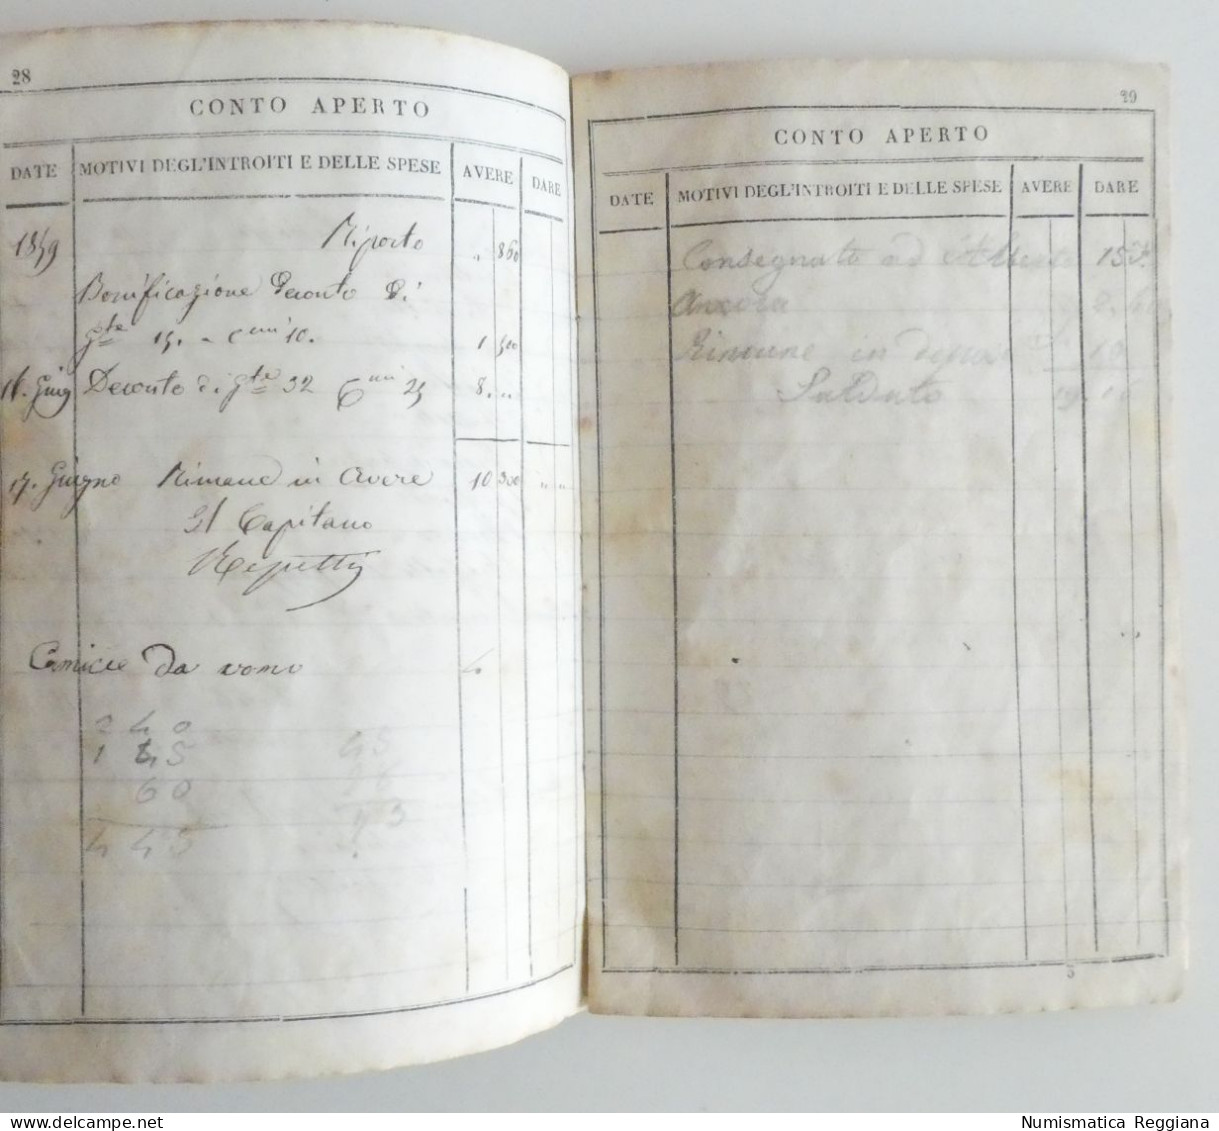 28
CONTO APERTO
DATE MOTIVI DEGL'INTROITI E DELLE SPESE AVERE DARE
1859 Riporto " 860
Bonificazione Deconto di
gte 15. - Cmi 10. 1 500
16. Giug Deconto di gte 32 Cmi 25 8. ..
17. Giugno Rimane in Avere 10 300 " "
Il Capitano
Repetti
Camicie da uomo 4
240
1 45 45
60
445
29
CONTO APERTO
DATE MOTIVI DEGL'INTROITI E DELLE SPESE AVERE DARE
Consegnato ad 15
Ancora
Rimane in 10
Saldato
3
Numismatica Reggiana